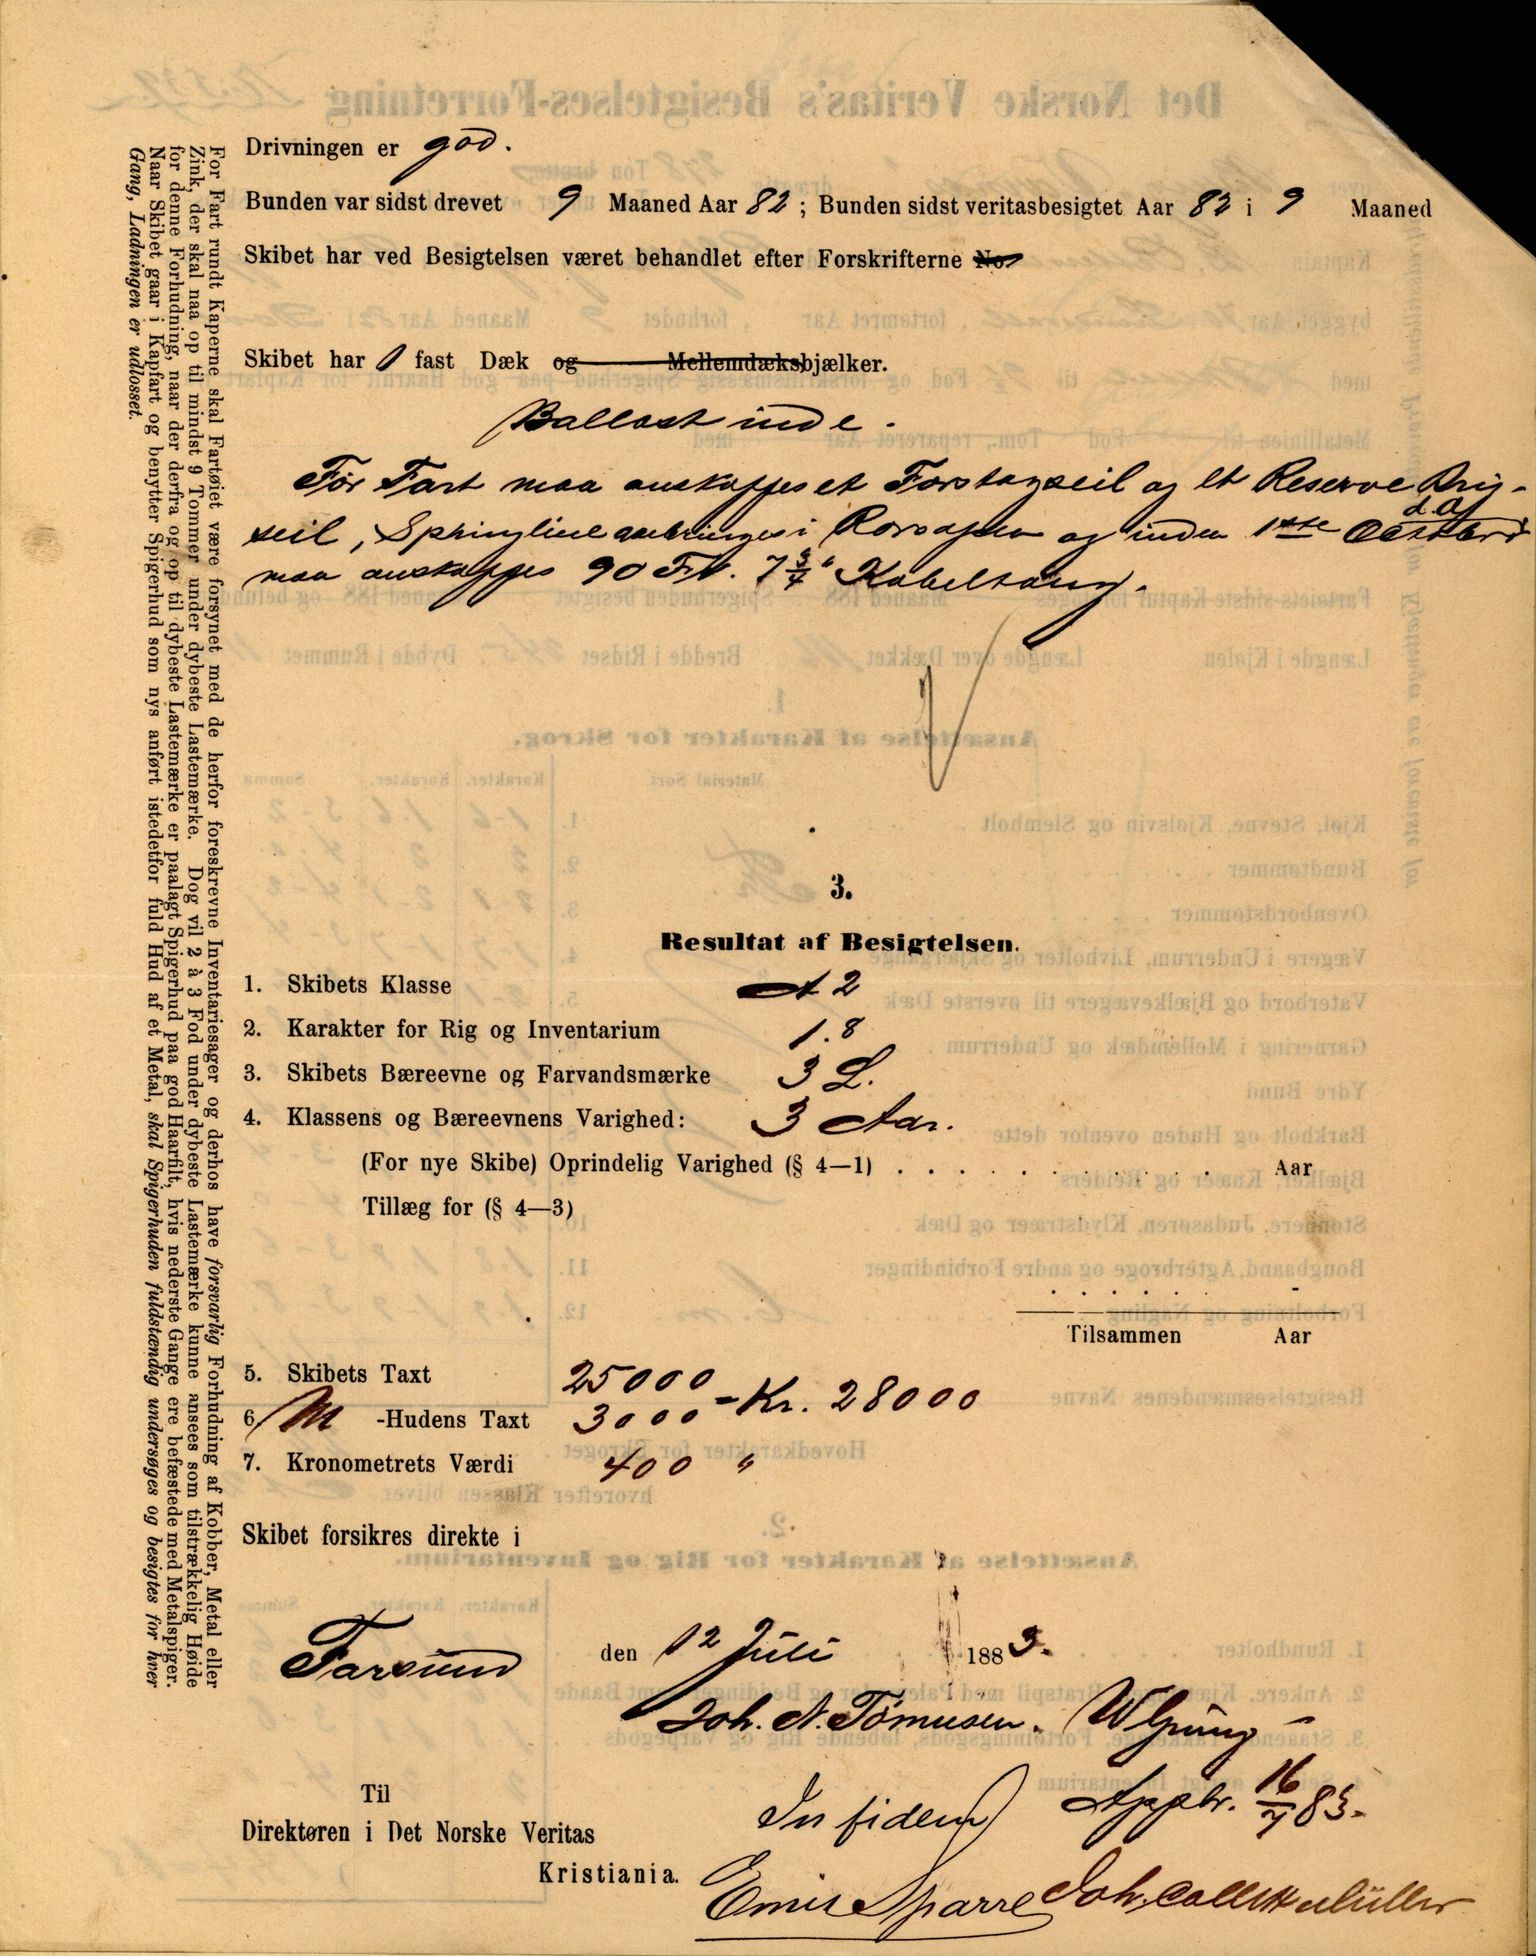 Drivningen er god.
Bunden var sidst drevet 9 Maaned Aar 82; Bunden sidst veritasbesigtet Aar 82 i 9 Maaned
Skibet har ved Besigtelsen været behandlet efter Forskrifterne No.
Skibet har 1 fast Dæk og Mellemdæksbjælker.
Ballast inde.
Før Fart maa anskaffes et Forstagseil og et Reserve Brig-
seil, Springline anbringes i og inden 1ste Oktober d. A.
maa anskaffes 90 Fv. 7 3/4" Kabeltaug.
3.
Resultat af Besigtelsen.
1. Skibets Klasse A 2
2. Karakter for Rig og Inventarium 1.8
3. Skibets Bæreevne og Farvandsmærke 3 L.
4. Klassens og Bæreevnens Varighed: 3 Aar.
(For nye Skibe) Oprindelig Varighed (§ 4—1) . . . . . . . . . . . Aar
Tillæg for (§ 4—3)
Tilsammen Aar
5. Skibets Taxt 25000
6 M -Hudens Taxt 3000 - Kr. 28000
7. Kronometrets Værdi 400 "
Skibet forsikres direkte i
Farsund den 12 Juli 1883.
Joh. A.
In fidem Appbr. 16/7 83.
Til
Direktøren i Det Norske Veritas
Kristiania.
Emil Sparre Joh. Collett Müller
For Fart rundt Kaperne skal Fartøiet være forsynet med de herfor foreskrevne Inventariesager og derhos have forsvarlig Forhudning af Kobber, Metal eller
Zink, der skal naa op til mindst 9 Tommer under dybeste Lastemærke. Dog vil 2 à 3 Fod under dybeste Lastemærke kunne ansees som tilstrækkelig Høide
for denne Forhudning, naar der derfra og op til dybeste Lastemærke er paalagt Spigerhud paa god Haarfilt, hvis nederste Gange ere befæstede med Metalspiger.
Naar Skibet gaar i Kapfart og benytter Spigerhud som nys anført istedetfor fuld Hud af et Metal, skal Spigerhuden fuldstændig undersøges og besigtes for hver
Gang, Ladningen er udlosset.